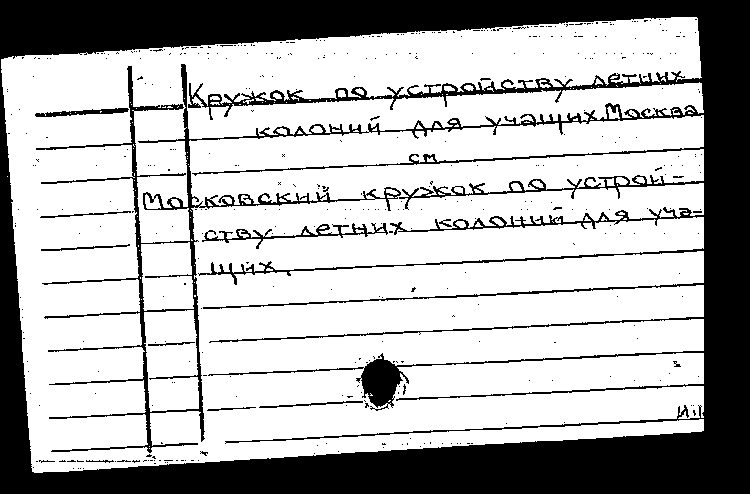 Кружок по устройству летних
колоний для учащих. Москва
см
Московский кружок по устрой-
ству летних колоний для уча-
щих.